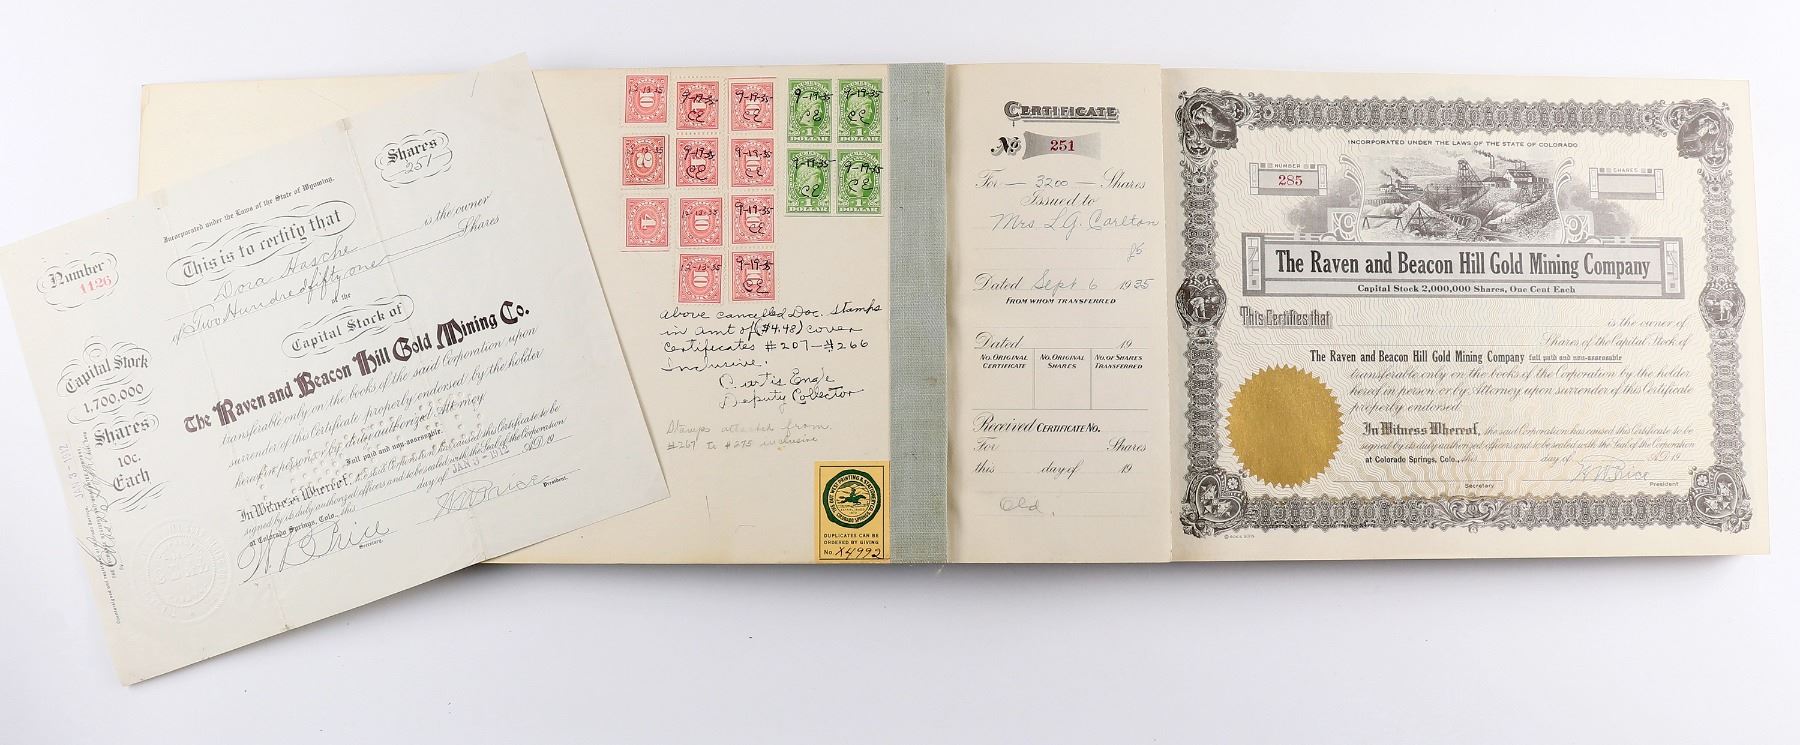 Incorporated under the Laws of the State of Wyoming.
Number
1126
Shares
251
This is to certify that
Dora Hasche
is the owner
of Two Hundred fifty one
Shares
of the
Capital Stock of
The Raven and Beacon Hill Gold Mining Co.
transferable only on the books of the said Corporation upon
surrender of this Certificate properly endorsed by the holder
hereof in person or by duly authorized Attorney
Full paid and non-assessable.
In Witness Whereof, the said Corporation has caused this Certificate to be
signed by its duly authorized officers and to be sealed with the Seal of the Corporation
at Colorado Springs, Colo., this day of JAN 3 - 1912 A.D. 19
President.
Secretary.
Capital Stock
1,700,000
Shares
10c.
Each
JAN 3 - 1912
12-13-35
9-19-35
CE
9-19-35
CE
9-19-35
CE
9-19-35
CE
10
1
DOLLAR
1
DOLLAR
12-13-35
9-19-35
CE
9-19-35
CE
9-19-35
CE
9-19-35
CE
2
1
DOLLAR
1
DOLLAR
4
12-13-35
10
9-19-35
CE
12-13-35
10
9-19-35
CE
Above cancelled Doc. Stamps
in amt of ($4.48) cover
Certificates #207-#266
Inclusive.
Curtis Engle
Deputy Collector
Stamps attached from
#267 to #275 inclusive
DUPLICATES CAN BE
ORDERED BY GIVING
No. X4992
CERTIFICATE
No 251
For - 3200 - Shares
Issued to
Mrs L.G. Carlton
Dated Sept 6 1935
FROM WHOM TRANSFERRED
Dated 19
No. ORIGINAL CERTIFICATE No. ORIGINAL SHARES No. OF SHARES TRANSFERRED
Received CERTIFICATE No.
For Shares
this day of 19
Old.
INCORPORATED UNDER THE LAWS OF THE STATE OF COLORADO
NUMBER
285
SHARES
The Raven and Beacon Hill Gold Mining Company
Capital Stock 2,000,000 Shares, One Cent Each
This Certifies that
is the owner of
Shares of the Capital Stock of
The Raven and Beacon Hill Gold Mining Company full paid and non-assessable
transferable only on the books of the Corporation by the holder
hereof in person or by Attorney upon surrender of this Certificate
properly endorsed.
In Witness Whereof, the said Corporation has caused this Certificate to be
signed by its duly authorized officers and to be sealed with the Seal of the Corporation
at Colorado Springs, Colo., this day of A.D. 19
Secretary
President